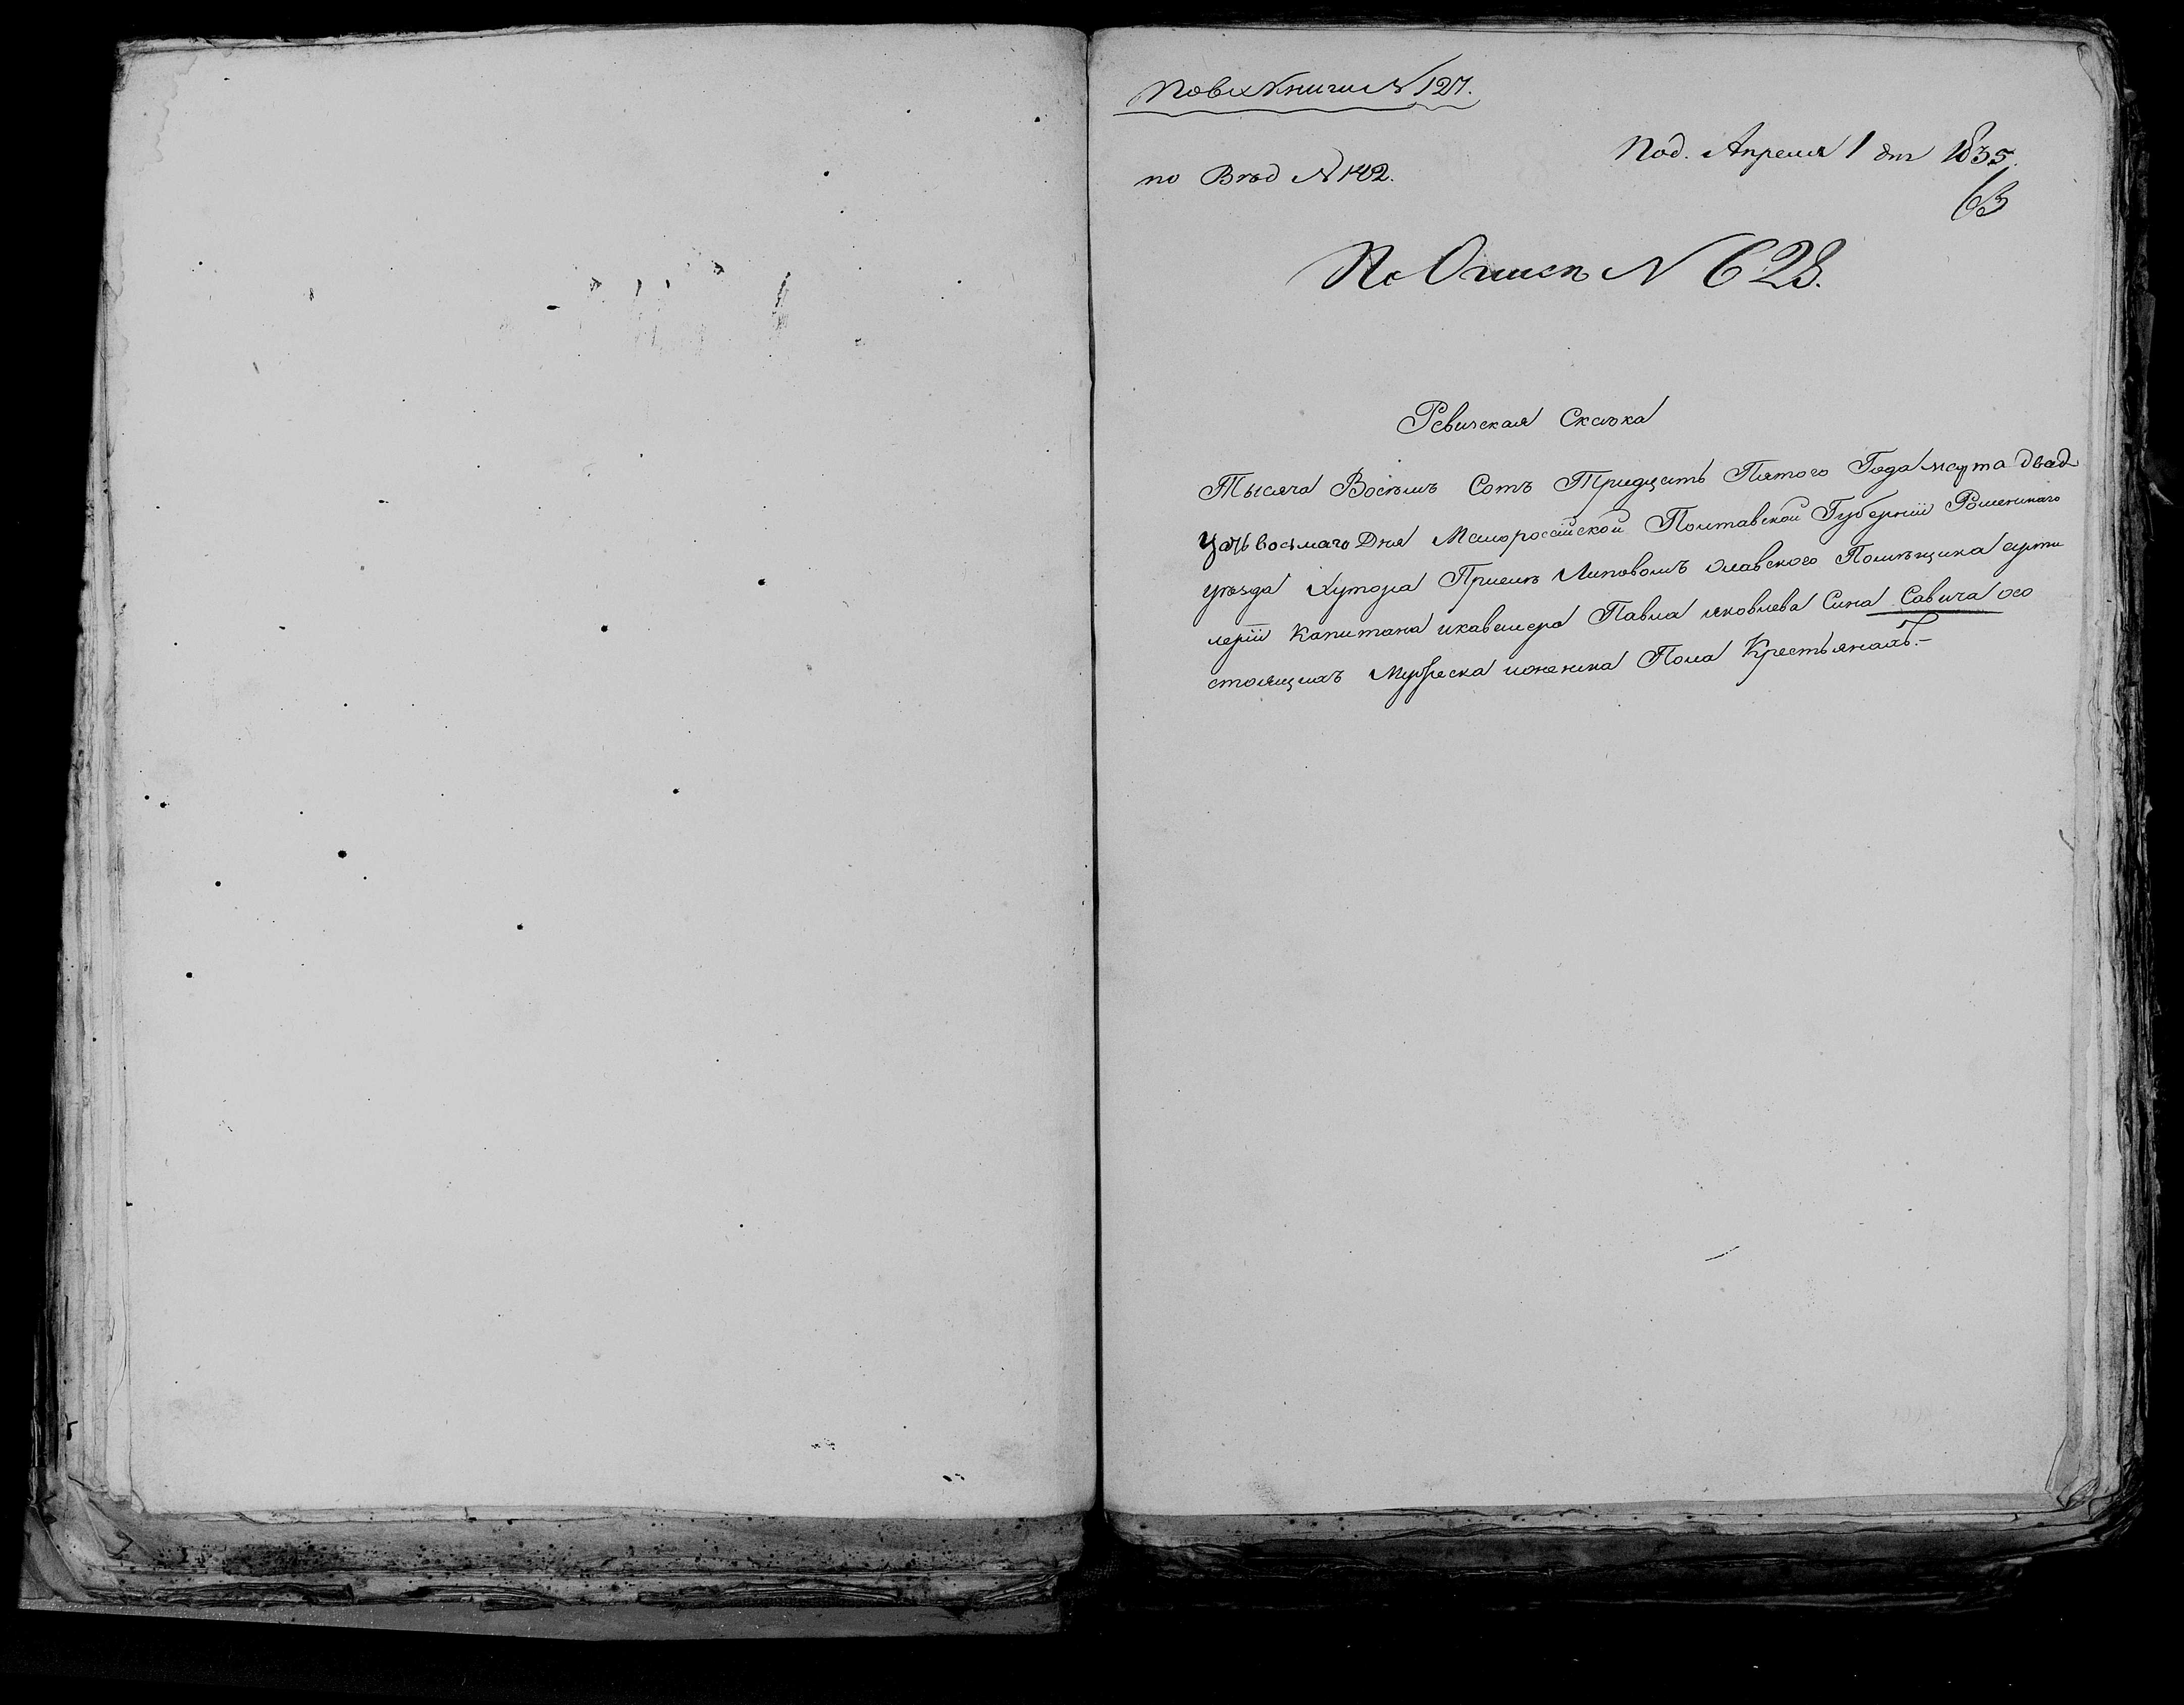 По вх книги № 127.
Под. Апреля 1 дня 1835.
по Вѣд № 142.
63
По Описѣ № 628.
Ревизская Сказка
Тысяча Восемъ Сотъ Тридцать Пятого Года марта двад
цать восьмаго Дня Малоросийской Полтавской Губернии Роменского
уѣзда Хутора При Липовомъ Помѣщика арти
лерїи Капитана икавалера Павла яковлева Сина Савича осо
стоящихъ Мужеска ионенска Пола Крестьянахъ.-